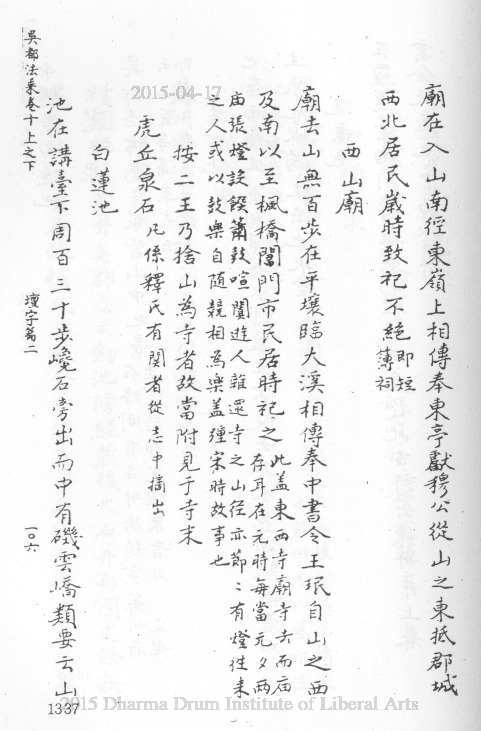 廟在入山南徑東嶺上相傳奉東亭獻穆公從山之東抵郡城
西北居民歲時致祀不絕即短
簿祠
西山廟
廟去山無百步在平壤臨大溪相傳奉中書令王珉自山之西
及南以至楓橋閶門市民居時祀之此蓋東西寺廟寺去而廟
存耳在元時每當元夕兩
庙張燈設饌簫鼓喧闐遊人雜還寺之山径亦節〻有燈徃来
之人或以鼓樂自随競相為樂盖殫宋時故事也
按二王乃捨山為寺者故當附見于寺末
虎丘泉石凡係釋氏有関者從志中摘出
白蓮池
池在講臺下周百三十步巉石旁出而中有磯雲嶠類要云山
吳都法乘卷十上之下
壇宇篇二
一〇六
1337
2015-04-17
2015 Dharma Drum Institute of Liberal Arts